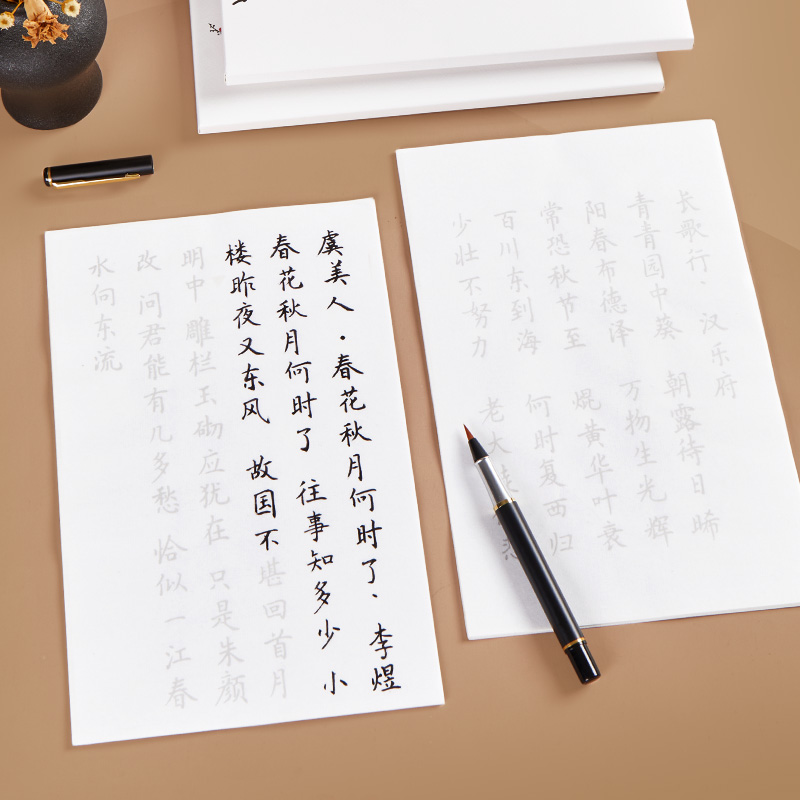 虞美人·春花秋月何时了、李煜
春花秋月何时了 往事知多少 小
楼昨夜又东风 故国不堪回首月
明中 雕栏玉砌应犹在 只是朱颜
改 问君能有几多愁 恰似一江春
水向东流
长歌行、汉乐府
青青园中葵 朝露待日晞
阳春布德泽 万物生光辉
常恐秋节至 焜黄华叶衰
百川东到海 何时复西归
少壮不努力 老大 悲